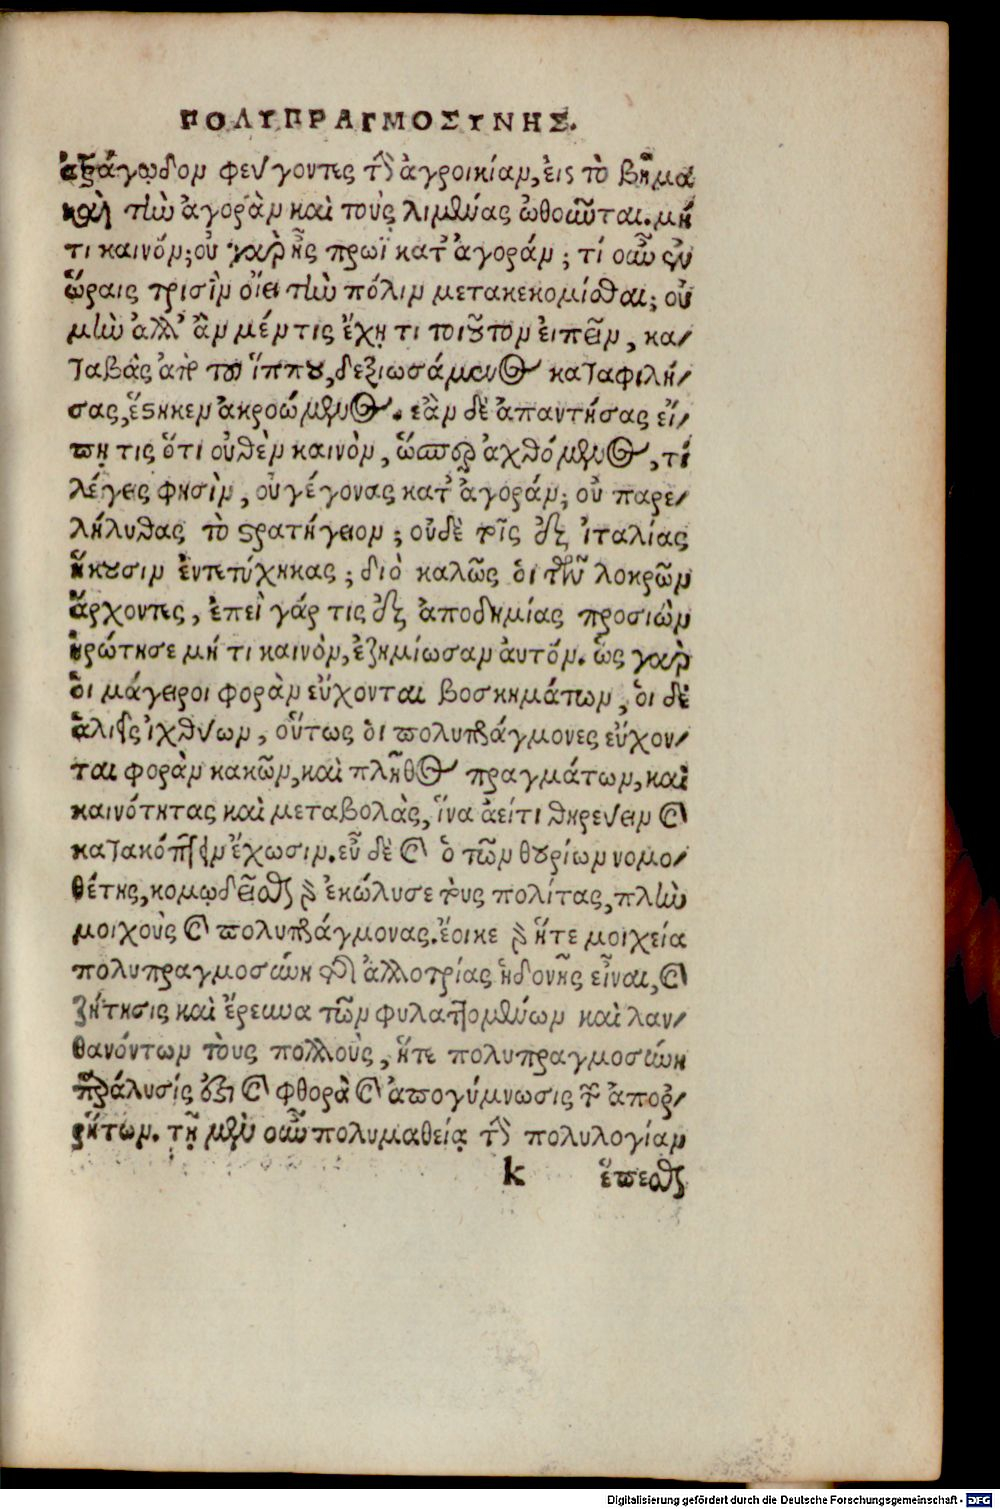 ΠΟΛΥΠΡΑΓΜΟΣΥΝΗΣ.
ἀτράγῳδον φεύγοντες τὴν ἀγροικίαν, εἰς τὸ βῆμα
καὶ τὴν ἀγορὰν καὶ τοὺς λιμένας ὠθοῦνται. μή
τι καινόν; οὐ γὰρ ἦς πρωῒ κατ' ἀγοράν; τί οὖν ἐν
ὥραις τρισὶν οἴει τὴν πόλιν μετακεκομίσθαι; οὐ
μὴν ἀλλ' ἂν μέν τις ἔχῃ τι τοιοῦτον εἰπεῖν, κα/
ταβὰς ἀπὸ τοῦ ἵππου, δεξιωσάμενος καταφιλή/
σας, ἕστηκεν ἀκροώμενος. ἐὰν δὲ ἀπαντήσας εἴ/
πῃ τις ὅτι οὐθὲν καινὸν, ὥσπερ ἀχθόμενος, τί
λέγεις φησὶν, οὐ γέγονας κατ' ἀγοράν; οὐ παρε/
λήλυθας τὸ στρατήγειον; οὐδὲ τοῖς ἐξ ἰταλίας
ἥκουσιν ἐντετύχηκας; διὸ καλῶς ὁι τῶν λοκρῶν
ἄρχοντες, ἐπεὶ γάρ τις ἐξ ἀποδημίας προσιὼν
ἠρώτησε μή τι καινὸν, ἐζημίωσαν ἀυτόν. ὡς γὰρ
ὁι μάγειροι φορὰν εὔχονται βοσκημάτων, ὁι δὲ
ἁλιεῖς ἰχθύων, οὕτως ὁι πολυπράγμονες εὔχον/
ται φορὰν κακῶν, καὶ πλῆθος πραγμάτων, καὶ
καινότητας καὶ μεταβολὰς, ἵνα ἀεί τι θηρεύειν καὶ
κατακόπτειν ἔχωσιν. εὖ δὲ καὶ ὁ τῶν θουρίων νομο/
θέτης, κομῳδεῖσθαι γὰρ ἐκώλυσε τοὺς πολίτας, πλὴν
μοιχοὺς καὶ πολυπράγμονας. ἔοικε γὰρ ἥτε μοιχεία
πολυπραγμοσύνη τις ἀλλοτρίας ἡδονῆς εἶναι, καὶ
ζήτησις καὶ ἔρευνα τῶν φυλαττομένων καὶ λαν/
θανόντων τοὺς πολλοὺς, ἥτε πολυπραγμοσύνη
παράλυσίς ἐστι καὶ φθορὰ καὶ ἀπογύμνωσις τῶν ἀποῤ/
ῥήτων. τῇ μὲν οὖν πολυμαθείᾳ τὴν πολυλογίαν
k ἕπεσθαι
Digitalisierung gefördert durch die Deutsche Forschungsgemeinschaft - DFG